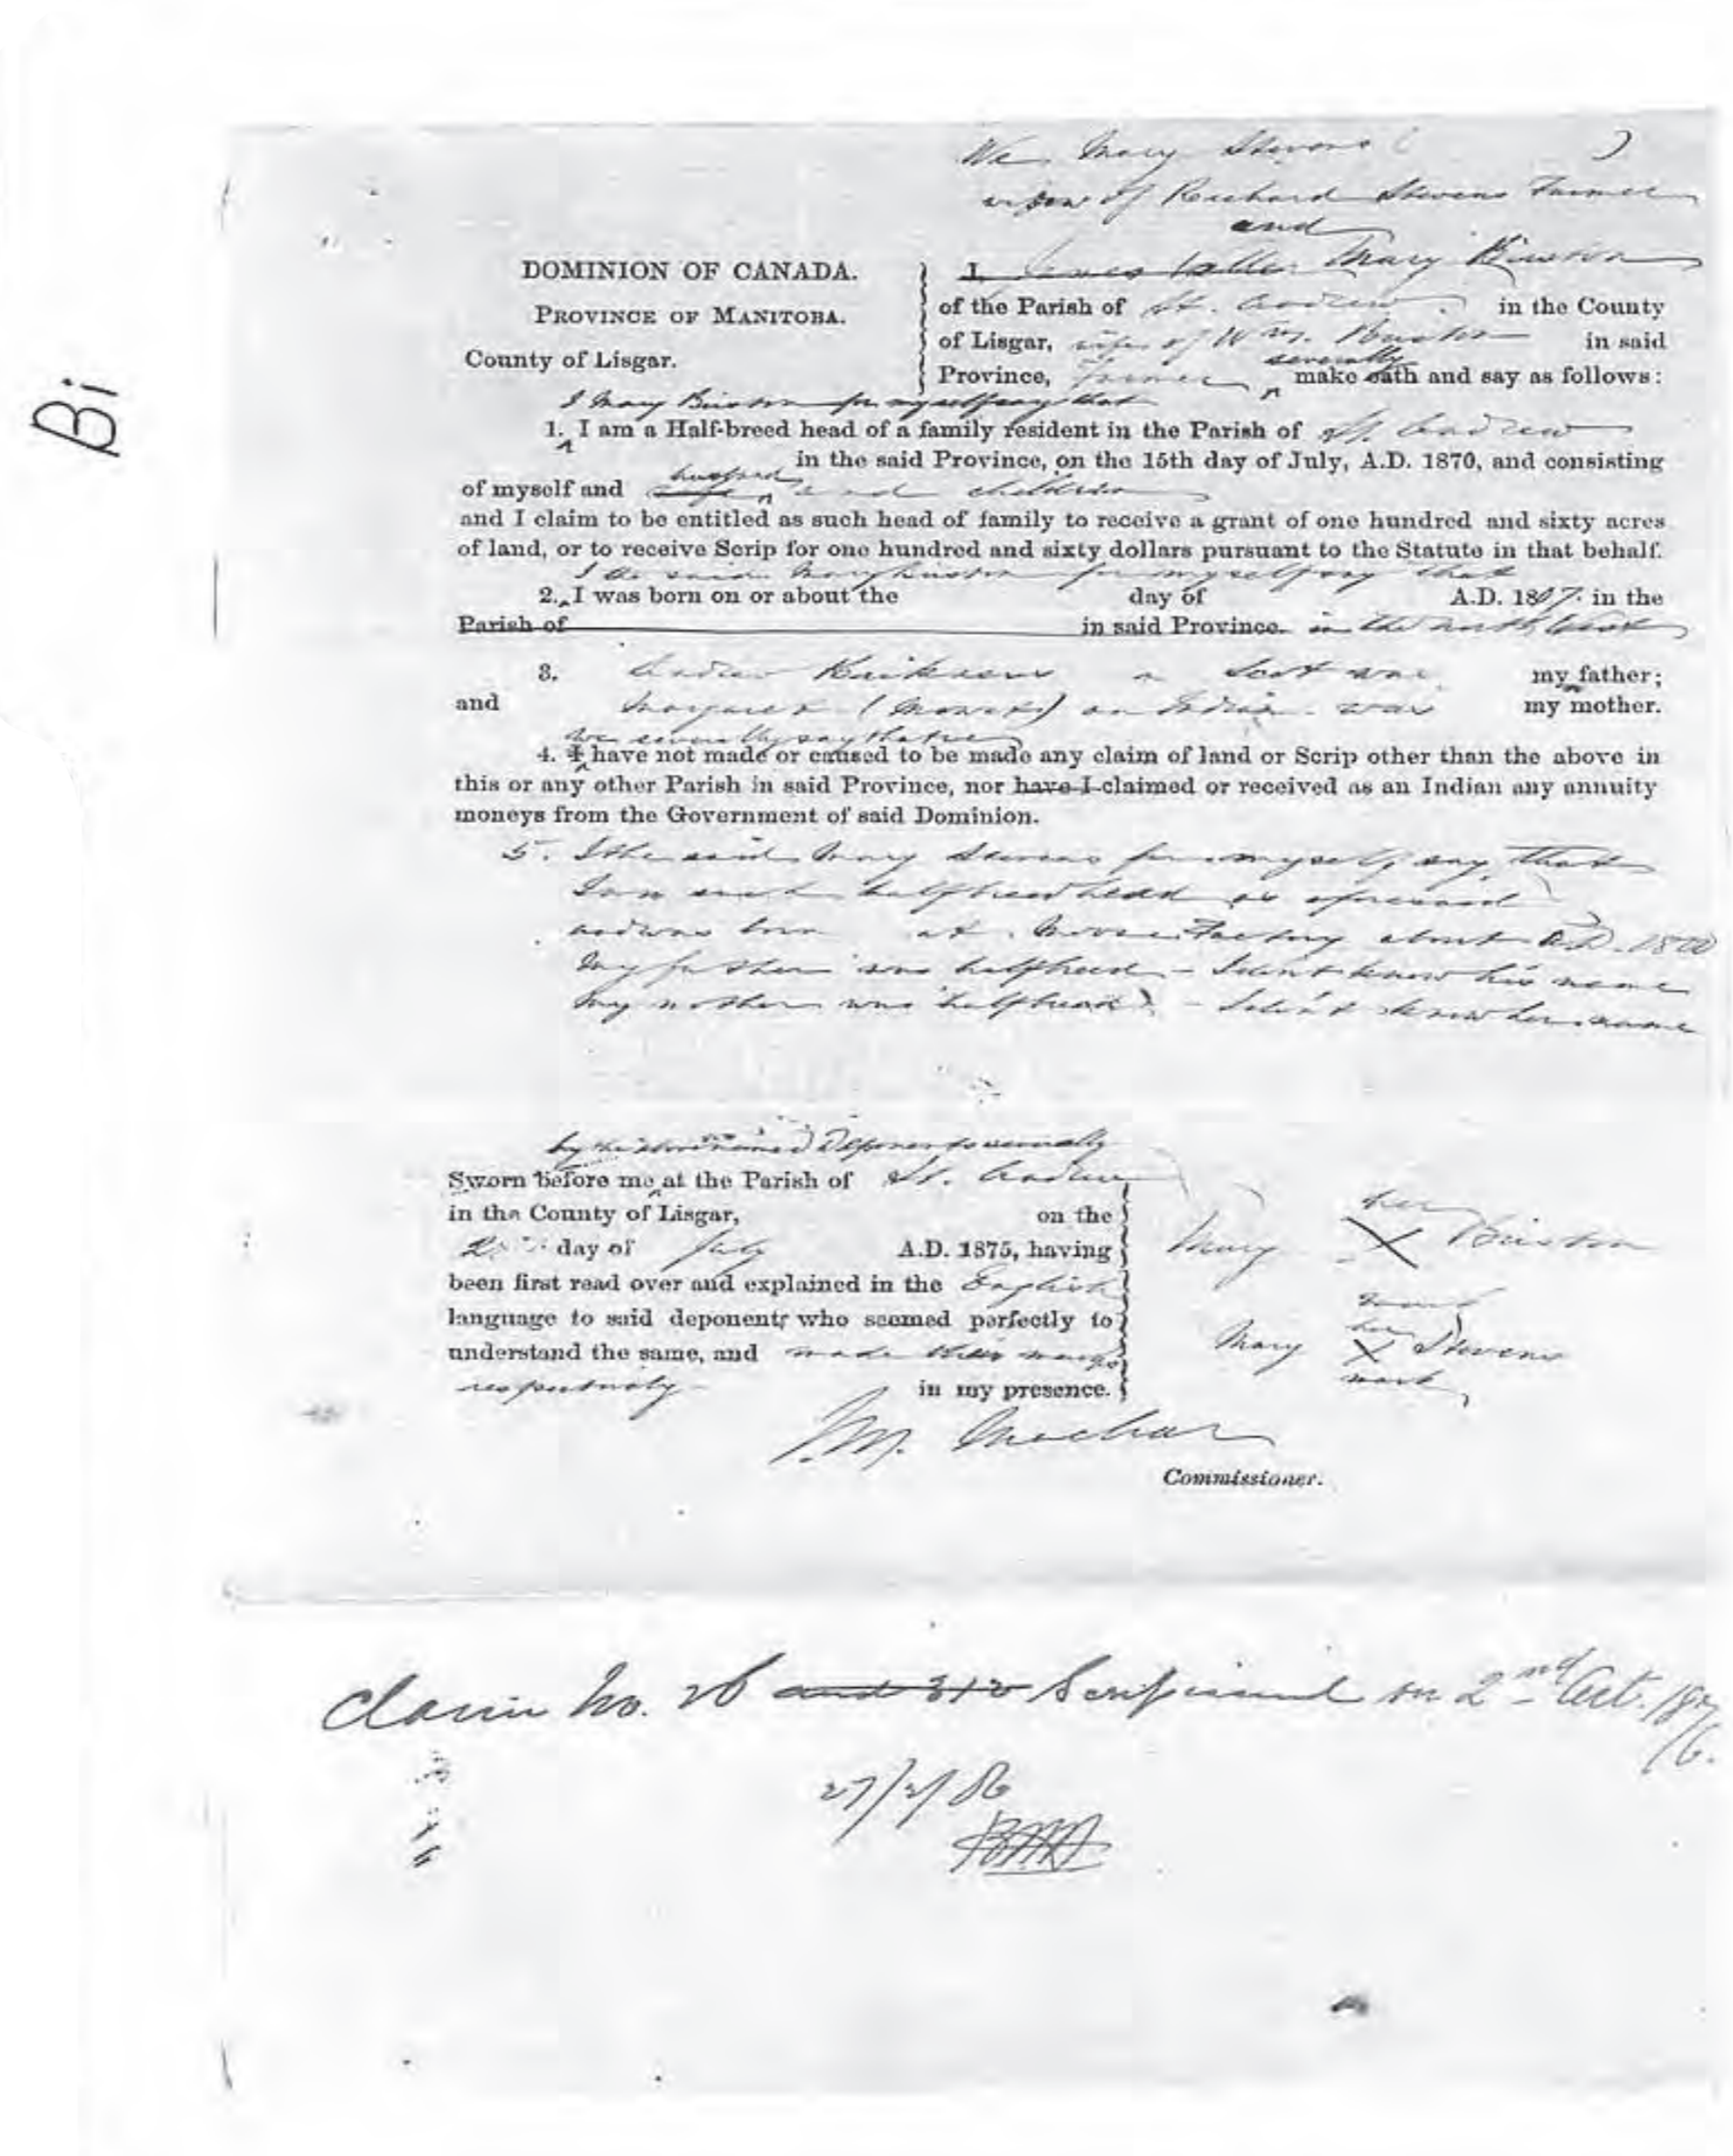 Bi
We Mary Stevens ( )
widow of Richard Stevens Farmer
and
DOMINION OF CANADA.
PROVINCE OF MANITOBA.
County of Lisgar.
I, Mary
of the Parish of St. Andrew in the County
of Lisgar, wife of Wm. in said
severally
Province, Farmer make oath and say as follows:
I Mary for myself say that
1. I am a Half-breed head of a family resident in the Parish of St. Andrew
in the said Province, on the 15th day of July, A.D. 1870, and consisting
husband
of myself and wife and children
and I claim to be entitled as such head of family to receive a grant of one hundred and sixty acres
of land, or to receive Scrip for one hundred and sixty dollars pursuant to the Statute in that behalf.
I the said Mary for myself say that
2. I was born on or about the day of A.D. 1807. in the
Parish of in said Province. in the North West
3. Andrew a Scot was my father;
and Margaret an Indian was my mother.
We severally say that we
4. I have not made or caused to be made any claim of land or Scrip other than the above in
this or any other Parish in said Province, nor have I claimed or received as an Indian any annuity
moneys from the Government of said Dominion.
5. I the said Mary Stevens for myself say, that
I am such halfbreed head as aforesaid
and was born at Moose Factory about A.D. 1800
My father was halfbreed - I don't know his name
My mother was halfbreed - I don't know her name
by the above named Deponents severally
Sworn before me at the Parish of St. Andrew
in the County of Lisgar, on the
day of July A.D. 1875, having
been first read over and explained in the English
language to said deponents who seemed perfectly to
understand the same, and made their marks
respectively in my presence.
her
Mary X
mark
her
Mary X Stevens
mark
Commissioner.
Claim No. 26 and 312 Scrip issued on 2nd Oct. 187
/6.
27/2/86